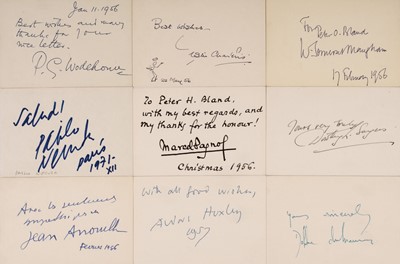 Jan 11. 1956
Best wishes and many
thanks for your
nice letter.
P. G. Wodehouse
Best Wishes
For
Peter O. Bland
W. Somerset Maugham
17 February 1956
Salud!
Pablo
Neruda
Paris
1971-
XII
To Peter H. Bland,
with my best regards, and
my thanks for the honour!
Marcel Pagnol
Christmas 1956.
Yours very truly
Dorothy L. Sayers
Avec les
Jean Anouilh
Février 1956
With all good wishes,
1957
Yours sincerely